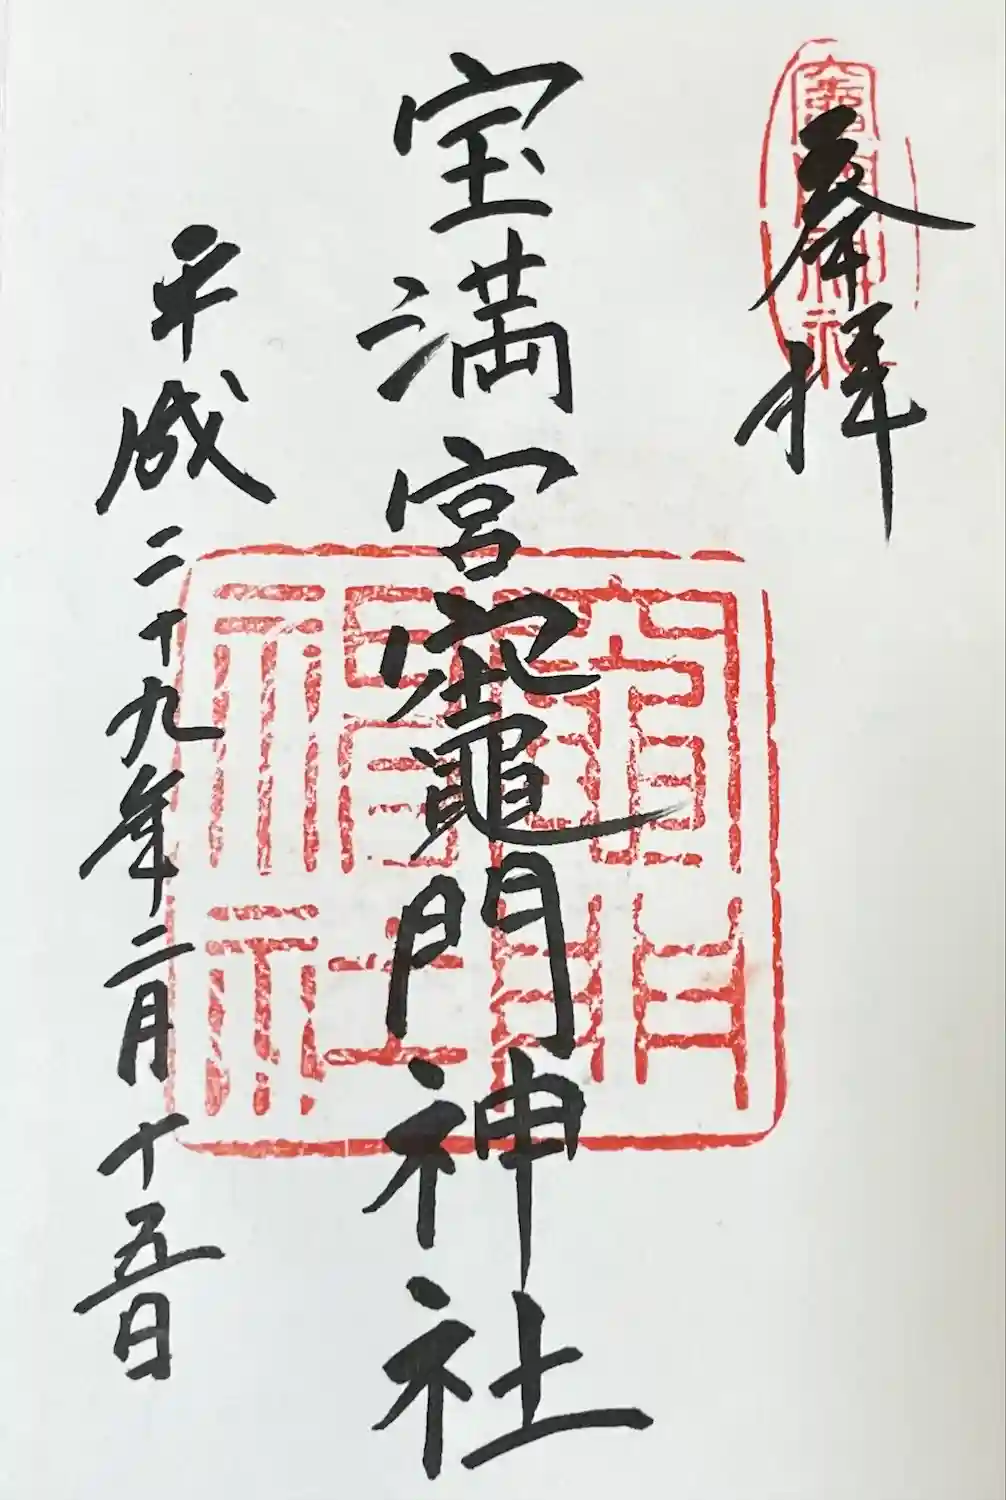 奉拝
宝満宮竈門神社
平成二十九年二月十五日
竈門神社